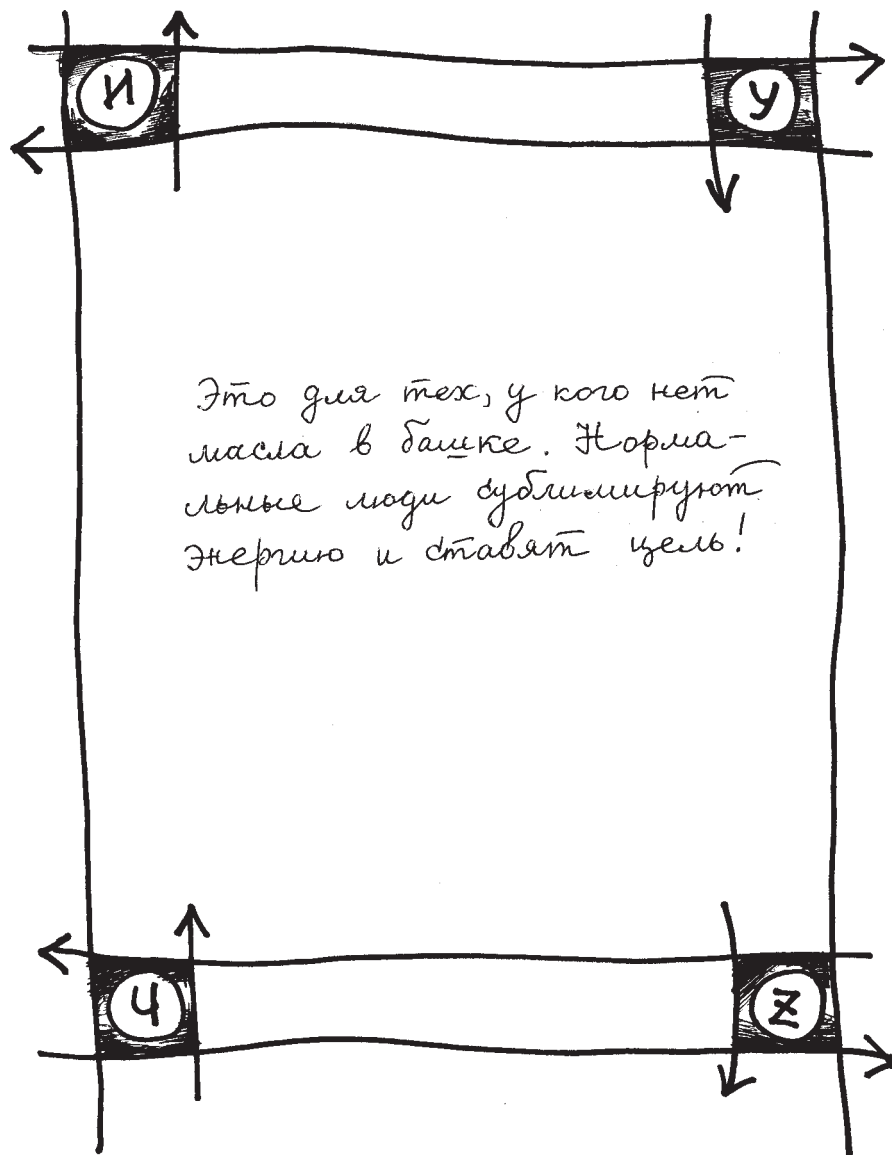 И У
Это для тех, у кого нет
масла в башке. Норма-
льные люди сублимируют
энергию и ставят цель!
Ч Z